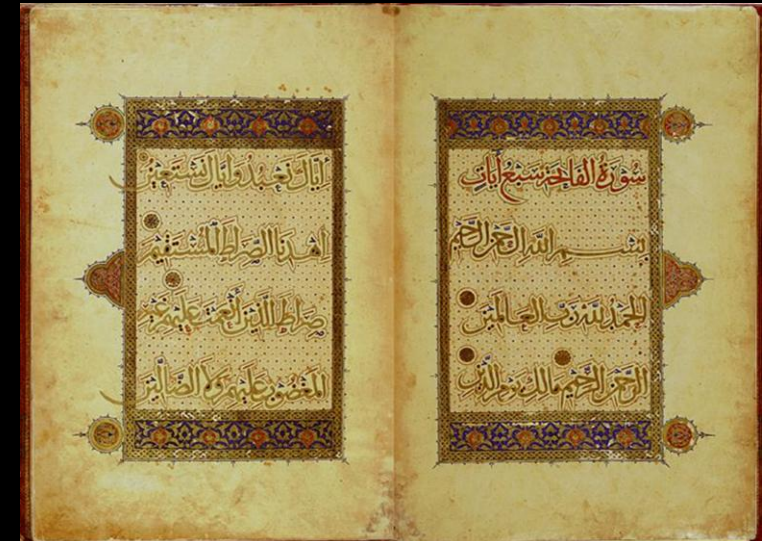 سُورَةُ الفَاتِحَة سَبْعُ أيَاتٍ
بِسْمِ اللّهِ الرَّحْمٰنِ الرَّحِيْمِ
الحَمْدُ لِلّهِ رَبِّ العَالَمِيْنَ
الرَّحْمٰنِ الرَّحِيْمِ مَالِكِ يَوْمِ الدِّيْنِ
إيَّاكَ نَعْبُدُ وَإيَّاكَ نَسْتَعِيْنُ
اهْدِنَا الصِّرَاطَ المُسْتَقِيْمَ
صِرَاطَ الَّذِيْنَ أنْعَمْتَ عَلَيْهِمْ غَيْرِ
المَغْضُوْبِ عَلَيْهِمْ وَلَا الضَّالِّيْنَ